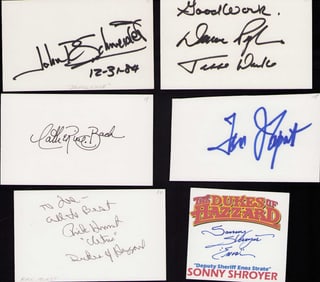 John Schneider
12-31-84
Good Work.
Jesse Duke
Catherine Bach
To Joe-
all the Best
Rick Hurst
"Cletus"
Dukes of Hazzard
THE DUKES OF
HAZZARD
Sonny
Shroyer
"Enos"
"Deputy Sheriff Enos Strate"
SONNY SHROYER